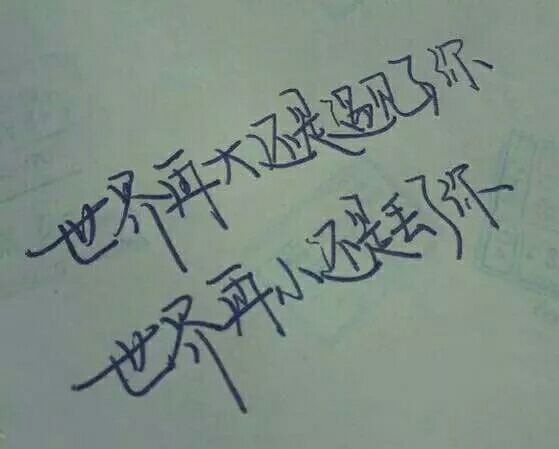 世界再大还是遇见了你
世界再小还是丢了你